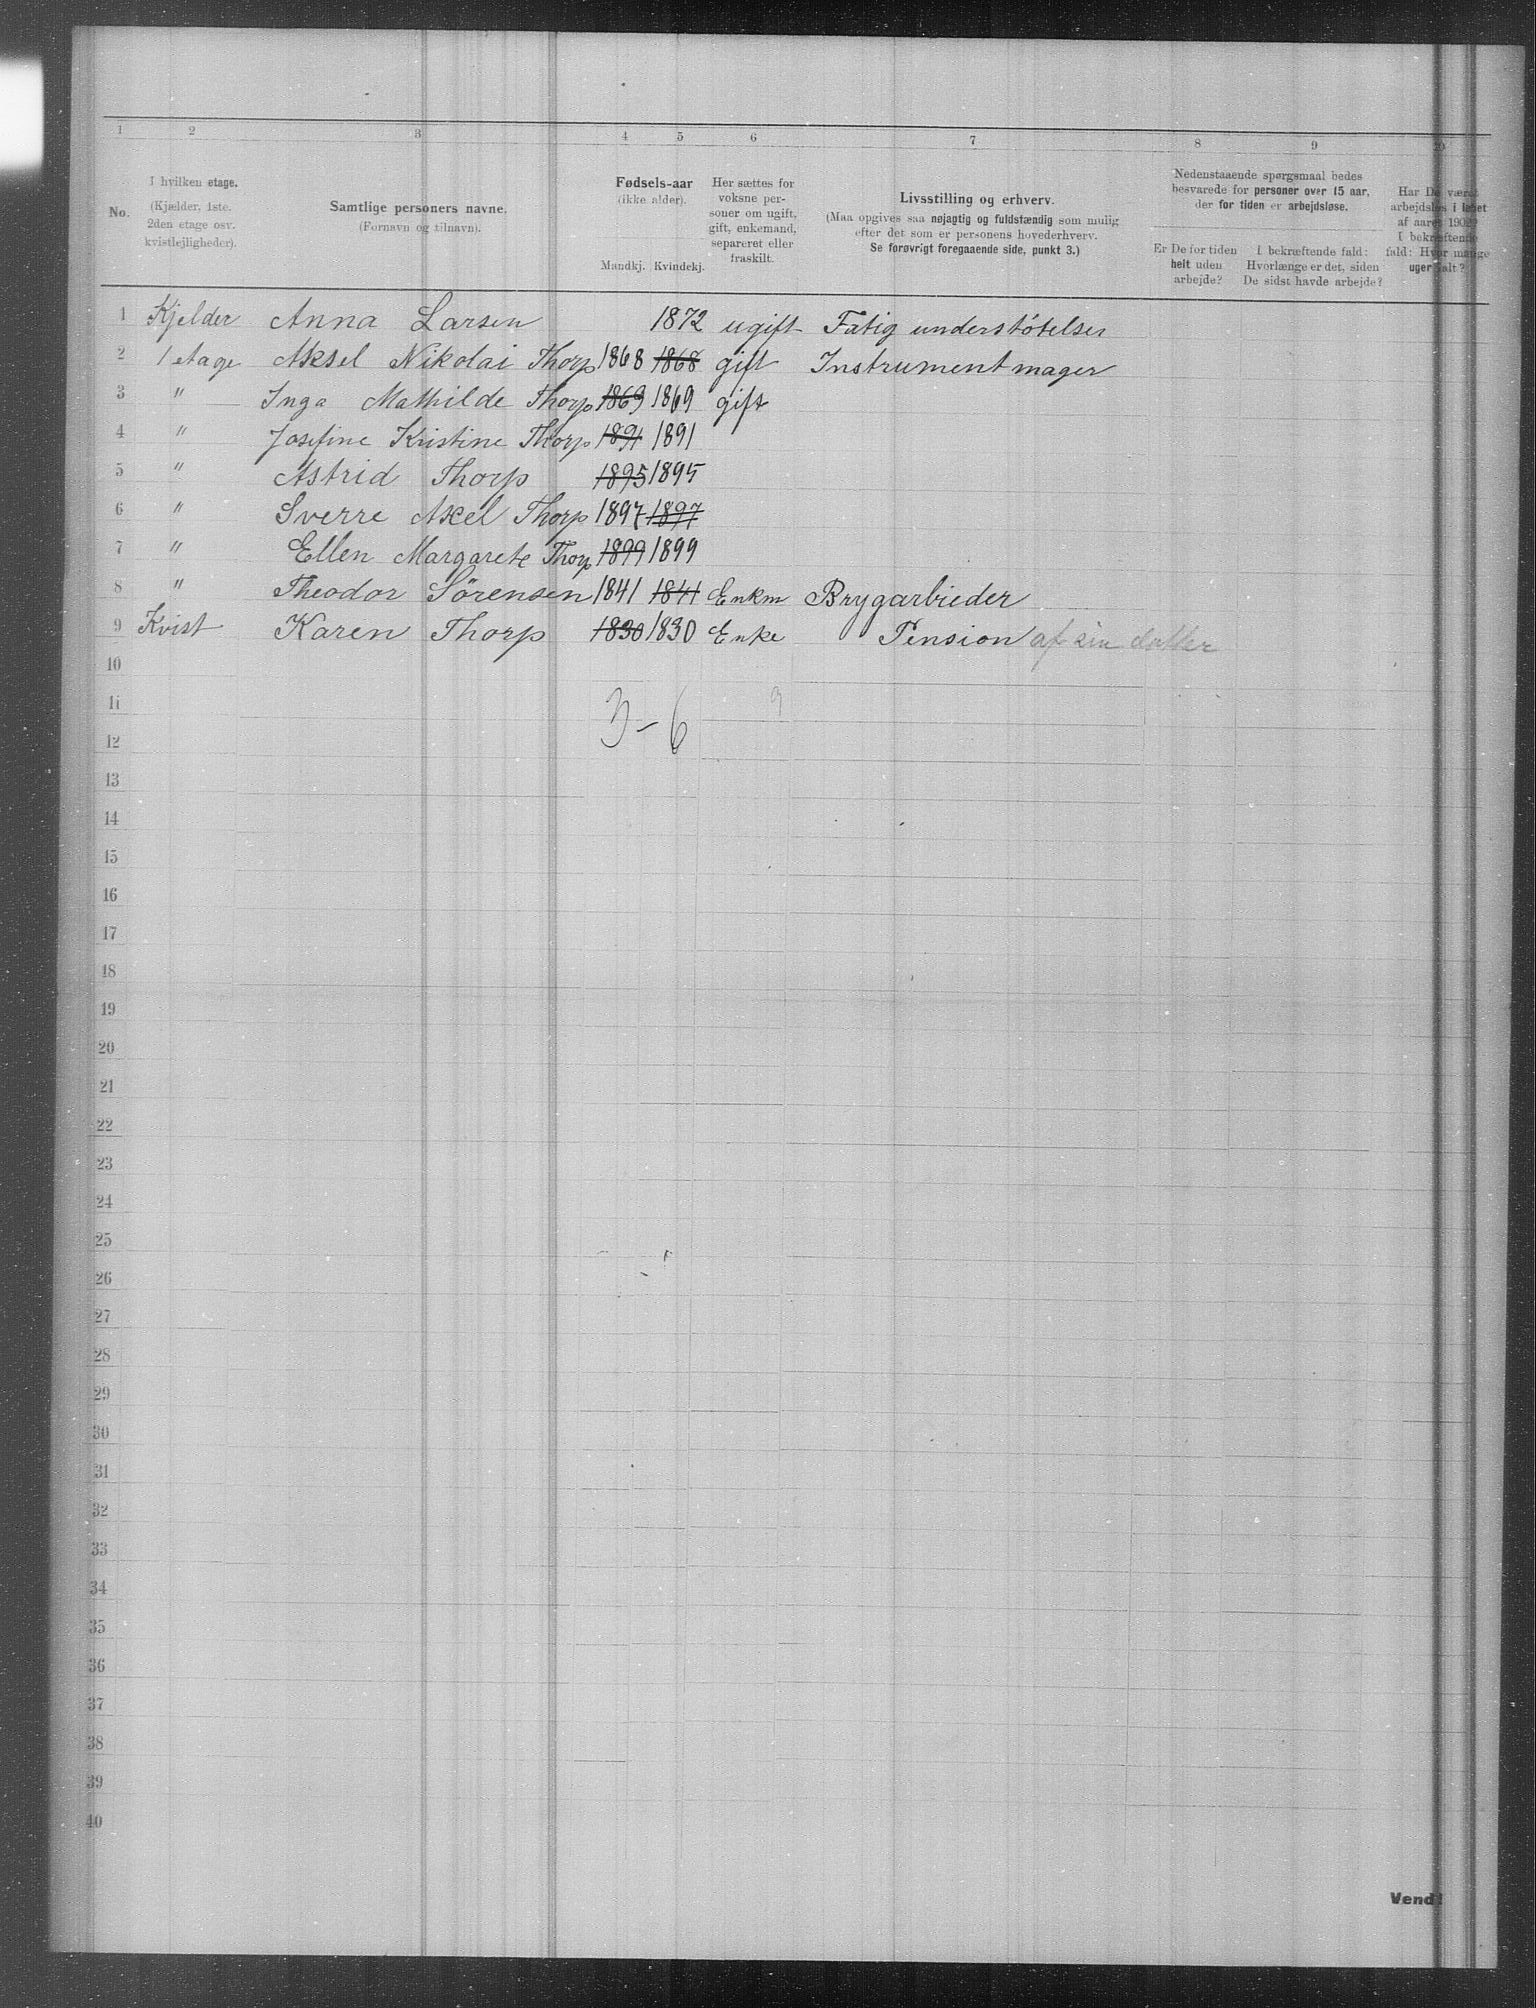 1 2 3 4 5 6 7 8 9 10
No.
I hvilken etage.
(Kjælder, 1ste.
2den etage osv.
kvistlejligheder).
Samtlige personers navne.
(Fornavn og tilnavn).
Fødsels-aar
(ikke alder).
Mandkj. Kvindekj.
Her sættes for
voksne per-
soner om ugift,
gift, enkemand,
separeret eller
fraskilt.
Livsstilling og erhverv.
(Maa opgives saa nøjagtig og fuldstændig som mulig
efter det som er personens hovederhverv.
Se forøvrigt foregaaende side, punkt 3.)
Nedenstaaende spørgsmaal bedes
besvarede for personer over 15 aar,
der for tiden er arbejdsløse.
Er De for tiden
helt uden
arbejde?
I bekræftende fald:
Hvorlænge er det, siden
De sidst havde arbejde?
Har De været
arbejdsløs i løbet
af aaret 1902?
I bekræftende
fald: Hvor mange
uger ialt?
1 Kjelder Anna Larsen 1872 ugift Fatig understøtelser
2 1 etage Aksel Nikolai Thorp 1868 1868 gift Instrumentmager
3 " Inga Mathilde Thorp 1869 1869 gift
4 " Josefine Kristine Thorp 1891 1891
5 " Astrid Thorp 1895 1895
6 " Sverre Axel Thorp 1897 1897
7 " Ellen Margarete Thorp 1899 1899
8 " Theodor Sørensen 1841 1841 Enkm Brygarbieder
9 Kvist Karen Thorp 1830 1830 Enke Pension af sin datter
10
11 3 - 6 9
12
13
14
15
16
17
18
19
20
21
22
23
24
25
26
27
28
29
30
31
32
33
34
35
36
37
38
39
40
Vend!